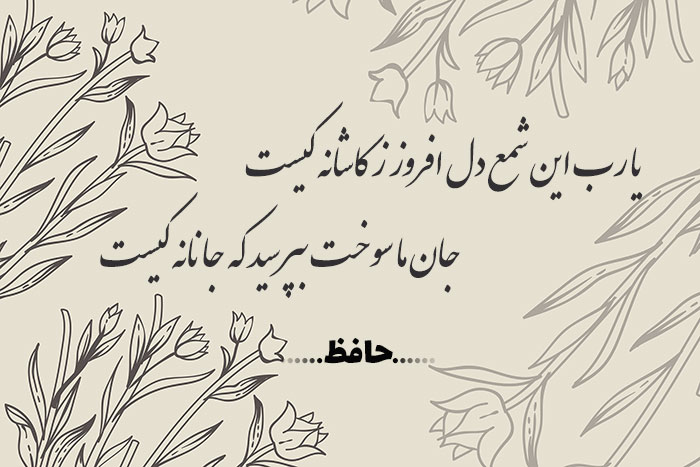 یارب این شمع دل افروز ز کاشانه کیست
جان ما سوخت بپرسید که جانانه کیست
......حافظ......